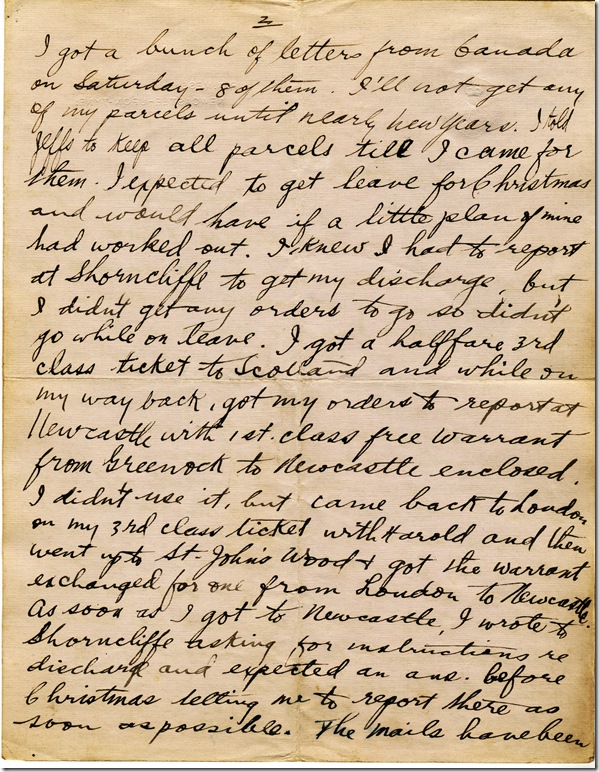 2
I got a bunch of letters from Canada
on Saturday - 8 of them. I'll not get any
of my parcels until nearly New Years. I told
Jeffs to keep all parcels till I came for
them. I expected to get leave for Christmas
and would have if a little plan of mine
had worked out. I knew I had to report
at Shorncliffe to get my discharge, but
I didn't get any orders to go so didn't
go while on leave. I got a half fare 3rd
class ticket to Scotland and while on
my way back, got my orders to report at
Newcastle with 1st. class free warrant
from Greenock to Newcastle enclosed.
I didn't use it, but came back to London
on my 3rd class ticket with Harold and then
went up to St. John's Wood & got the warrant
exchanged for one from London to Newcastle.
As soon as I got to Newcastle, I wrote to
Shorncliffe asking for instructions re
discharg and expected an ans. before
Christmas telling me to report there as
soon as possible. The mails have been